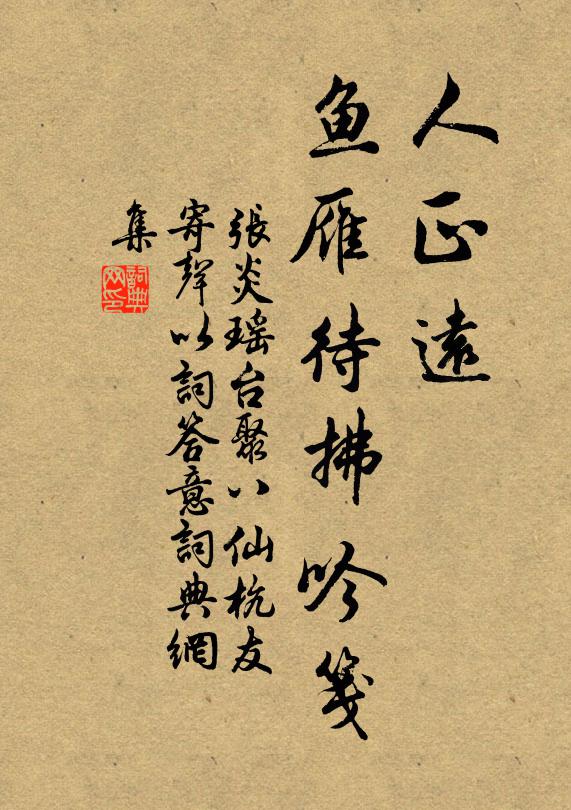 人正遠
鱼雁待拂吟箋
張炎瑶台聚八仙杭友
寄聲以詞答意詞典網
集
詞典
网印